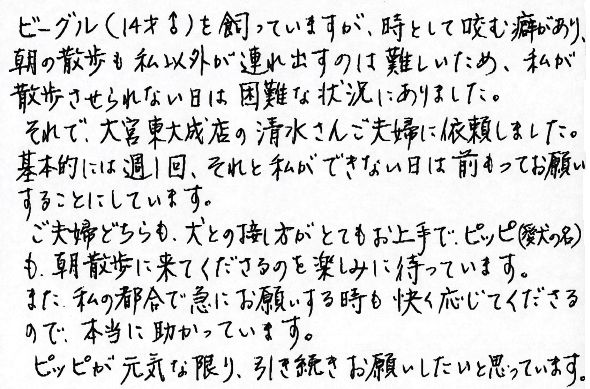 ビーグル(14才♂)を飼っていますが、時として咬む癖があり、
朝の散歩も私以外が連れ出すのは難しいため、私が
散歩させられない日は困難な状況にありました。
それで、大宮東大成店の清水さんご夫婦に依頼しました。
基本的には週1回、それと私ができない日は前もってお願い
することにしています。
ご夫婦どちらも、犬との接し方がとてもお上手で、ピッピ(愛犬の名)
も、朝散歩に来てくださるのを楽しみに待っています。
また、私の都合で急にお願いする時も快く応じてくださる
ので、本当に助かっています。
ピッピが元気な限り、引き続きお願いしたいと思っています。